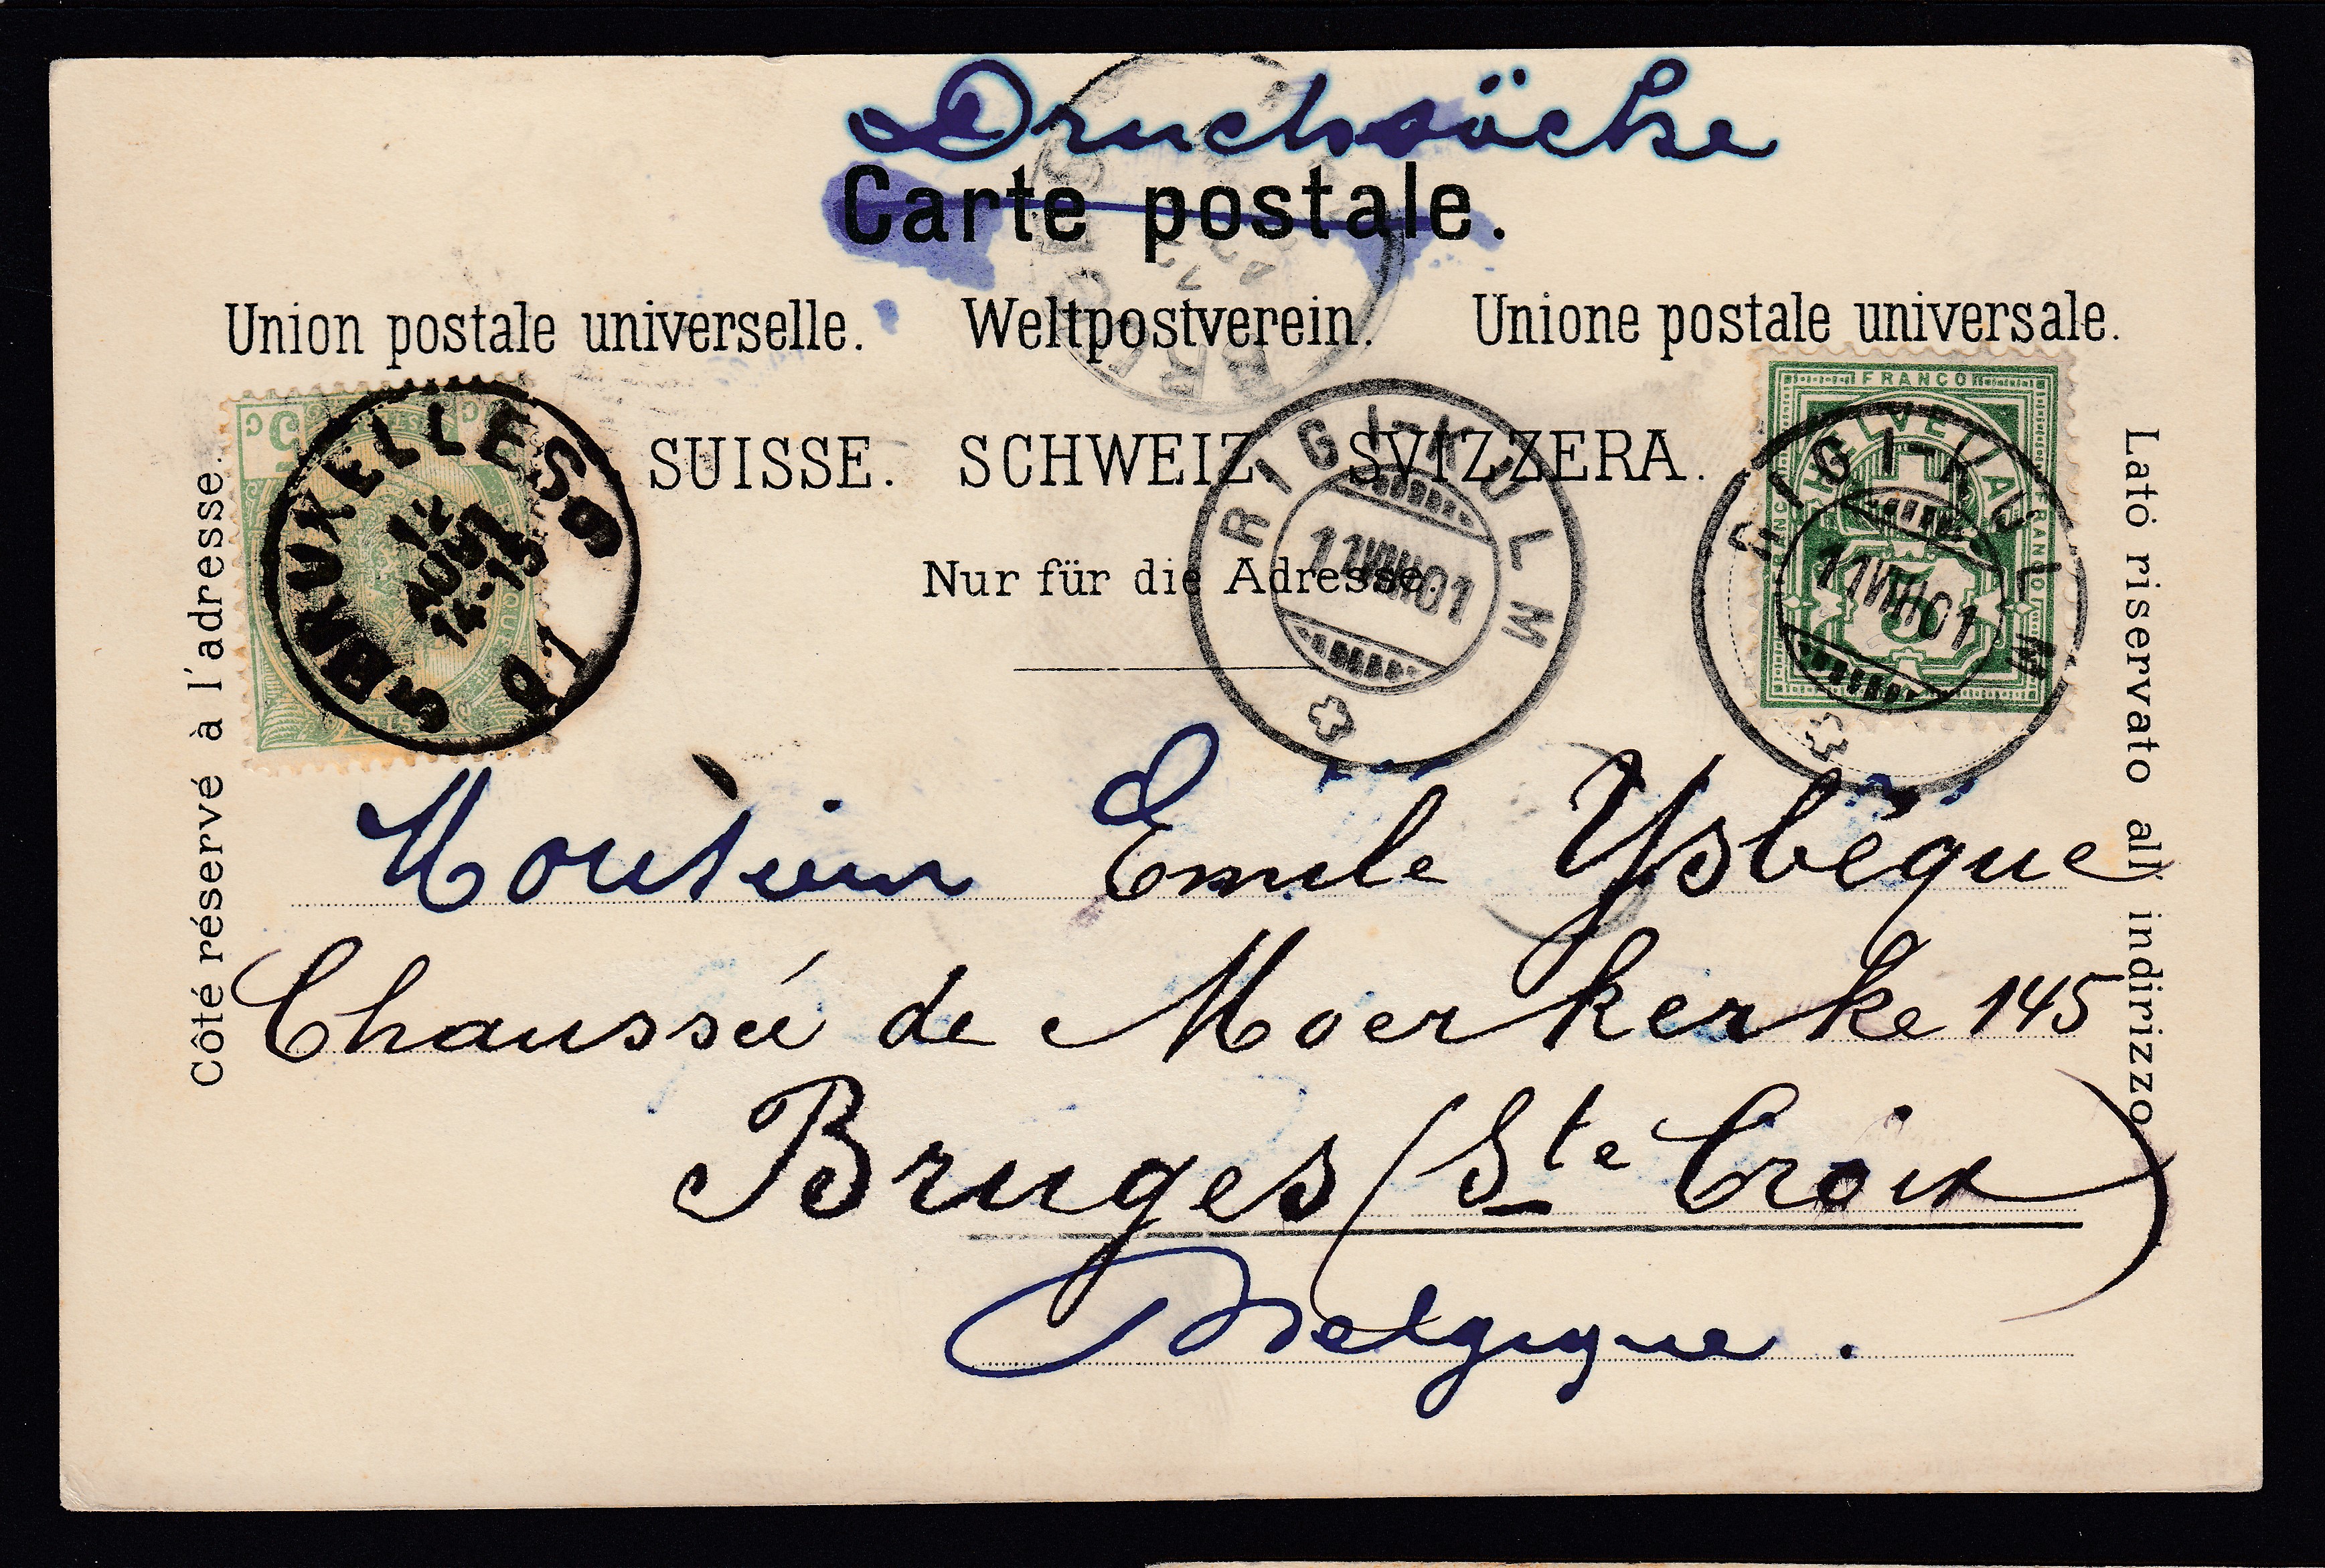 Drucksäche
Carte postale.
Union postale universelle. Weltpostverein. Unione postale universale.
SUISSE. SCHWEIZ. SVIZZERA.
Nur für die Adresse.
Côté réservé à l'adresse.
Lato riservato all' indirizzo.
5 C
BRUXELLES 9
12
AOUT
14-15
01
RIGI-KULM
11 VIII 01
FRANCO
HELVETIA
5
RIGI-KULM
11 VIII 01
Monsieur Emile Ysbêque
Chaussée de Moerkerke 145
Bruges (Ste Croix)
Belgique.